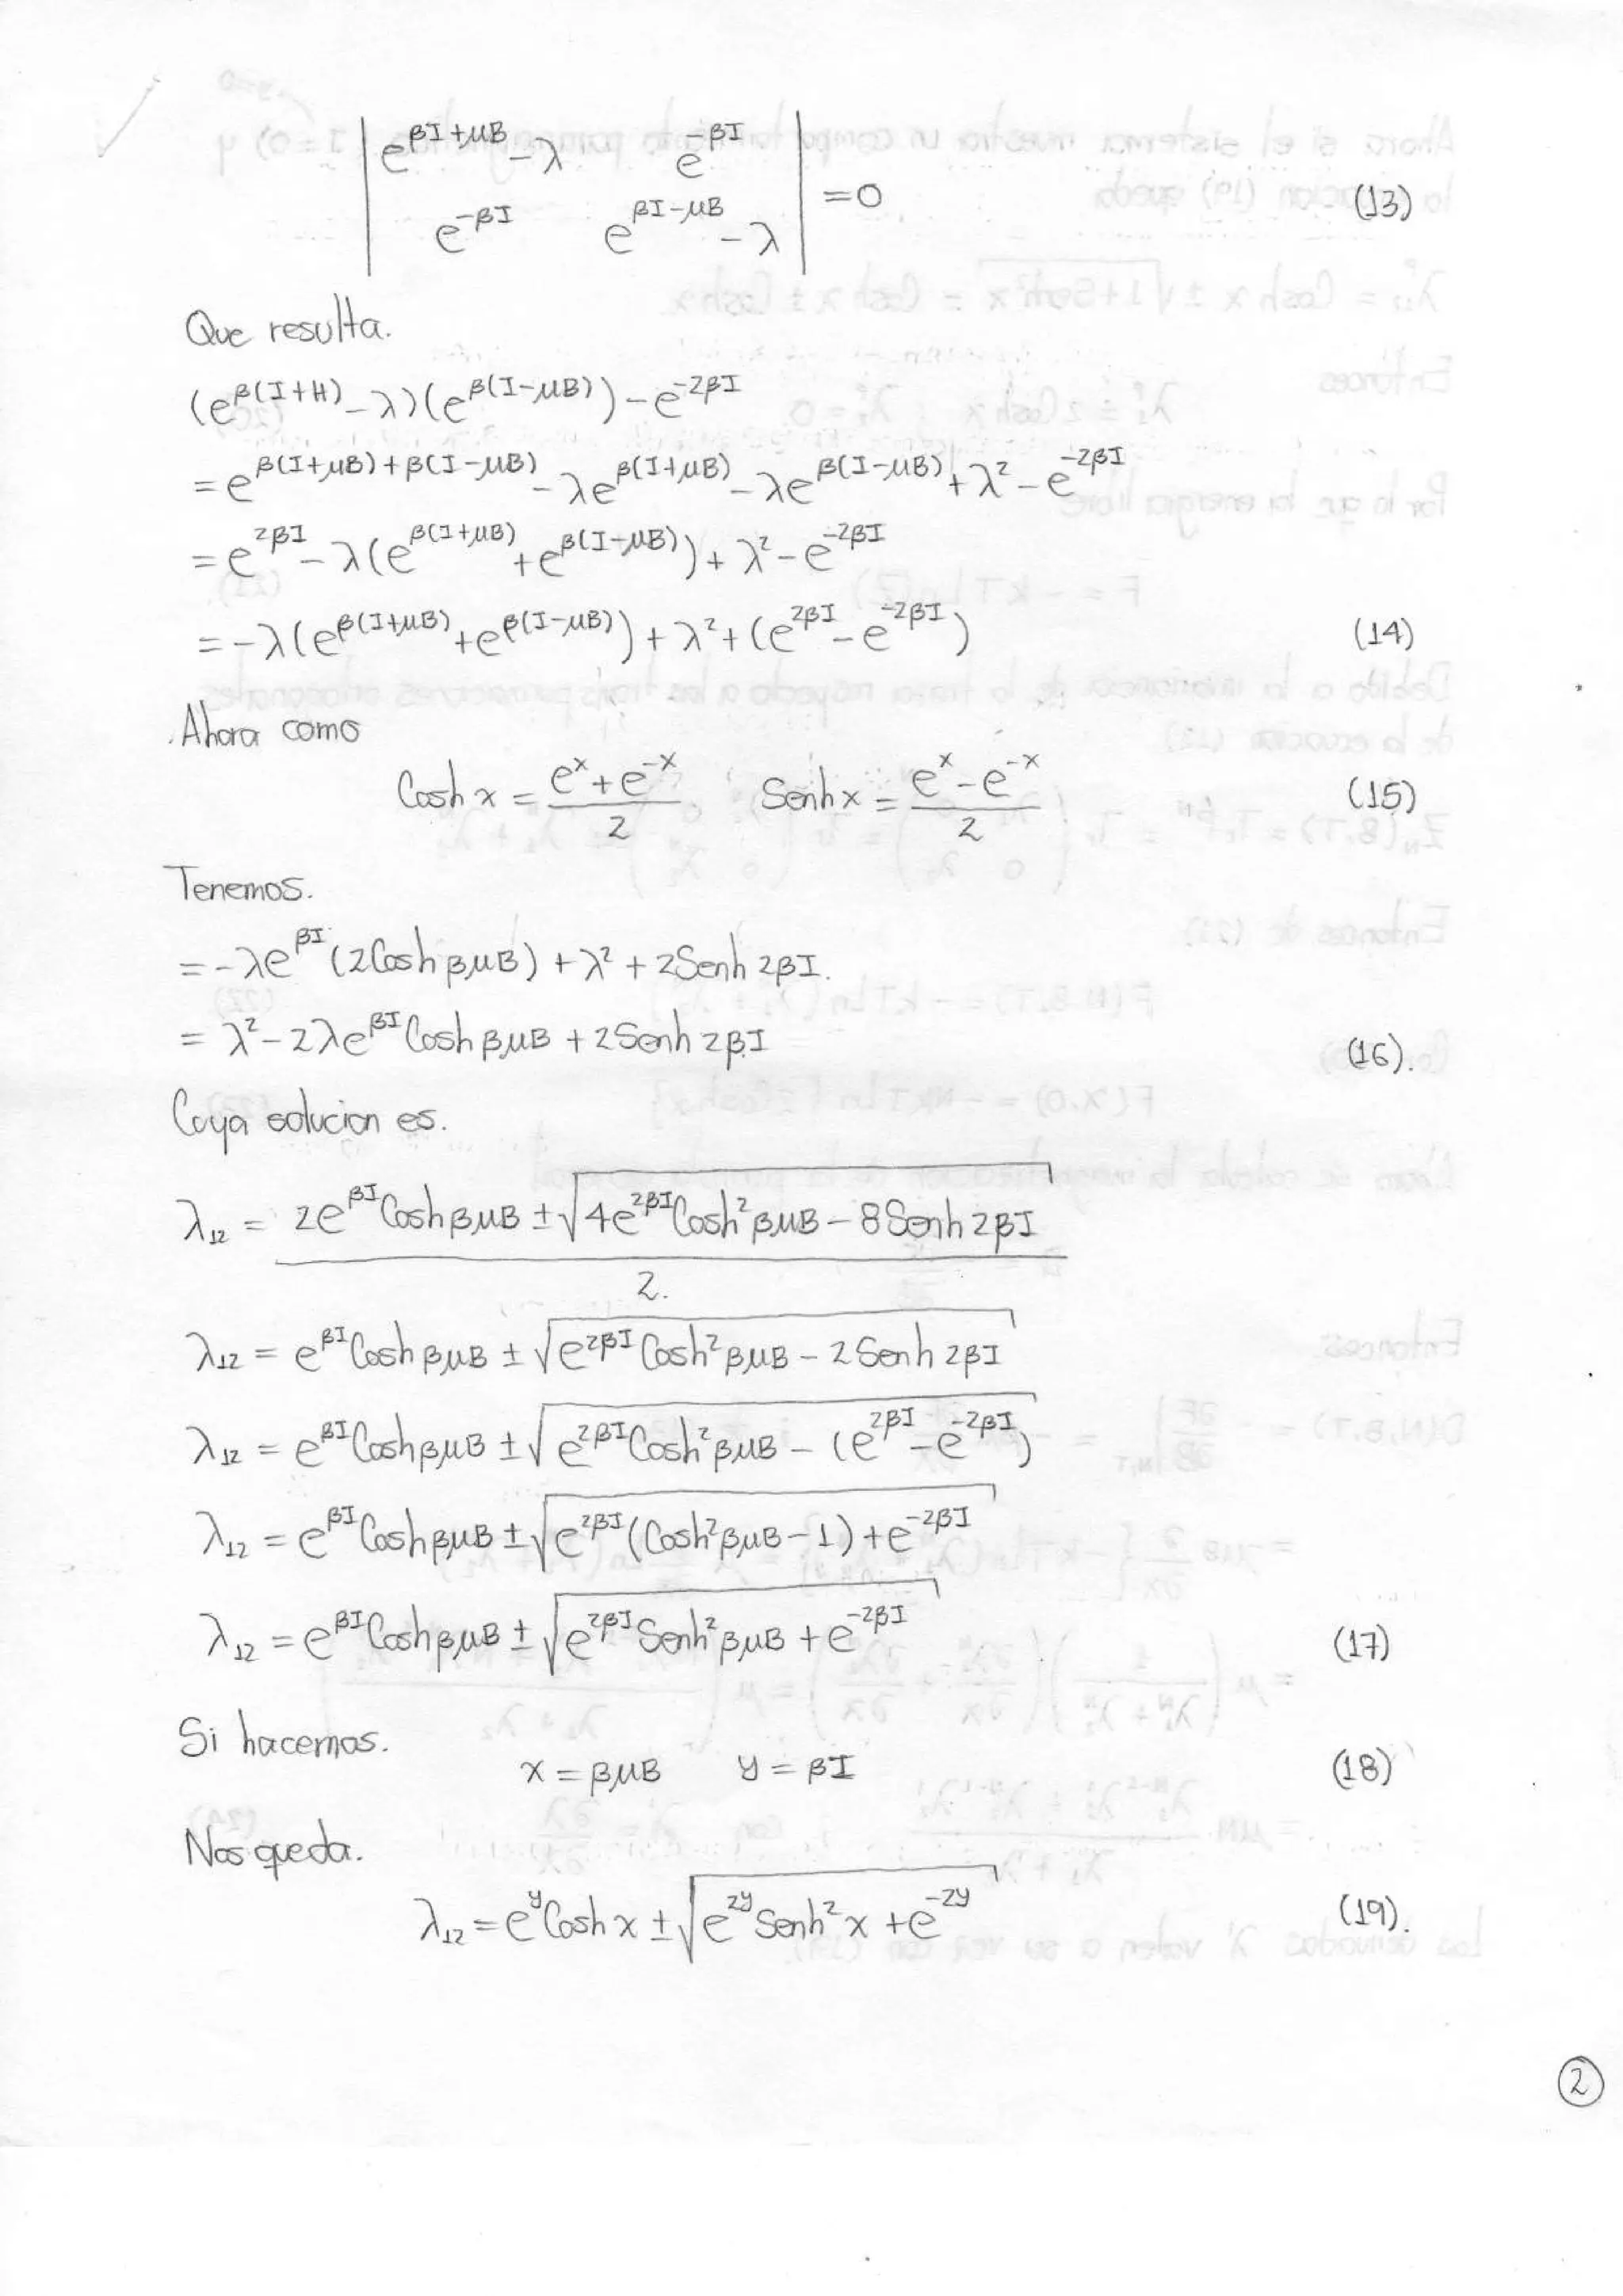 | e^{βI+μB} - λ   e^{-βI} |
| e^{-βI}   e^{βI-μB} - λ | = 0   (13)
Que resulta.
(e^{β(I+H)} - λ)(e^{β(I-μB)}) - e^{-2βI}
= e^{β(I+μB)+β(I-μB)} - λe^{β(I+μB)} - λe^{β(I-μB)} + λ² - e^{-2βI}
= e^{2βI} - λ(e^{β(I+μB)} + e^{β(I-μB)}) + λ² - e^{-2βI}
= -λ(e^{β(I+μB)} + e^{β(I-μB)}) + λ² + (e^{2βI} - e^{-2βI})   (14)
Ahora como
Cosh x = (e^x + e^{-x})/2   Senh x = (e^x - e^{-x})/2   (15)
Tenemos.
= -λe^{βI}(2Cosh βμB) + λ² + 2Senh 2βI.
= λ² - 2λe^{βI}Cosh βμB + 2Senh 2βI   (16).
Cuya solucion es.
λ₁₂ = (2e^{βI}Cosh βμB ± √(4e^{2βI}Cosh² βμB - 8Senh 2βI))/2.
λ₁₂ = e^{βI}Cosh βμB ± √(e^{2βI}Cosh² βμB - 2Senh 2βI)
λ₁₂ = e^{βI}Cosh βμB ± √(e^{2βI}Cosh² βμB - (e^{2βI} - e^{-2βI}))
λ₁₂ = e^{βI}Cosh βμB ± √(e^{2βI}(Cosh² βμB - 1) + e^{-2βI})
λ₁₂ = e^{βI}Cosh βμB ± √(e^{2βI}Senh² βμB + e^{-2βI})   (17)
Si hacemos.
x = βμB   y = βI   (18)
Nos queda.
λ₁₂ = e^y Cosh x ± √(e^{2y} Senh² x + e^{-2y})   (19).
2